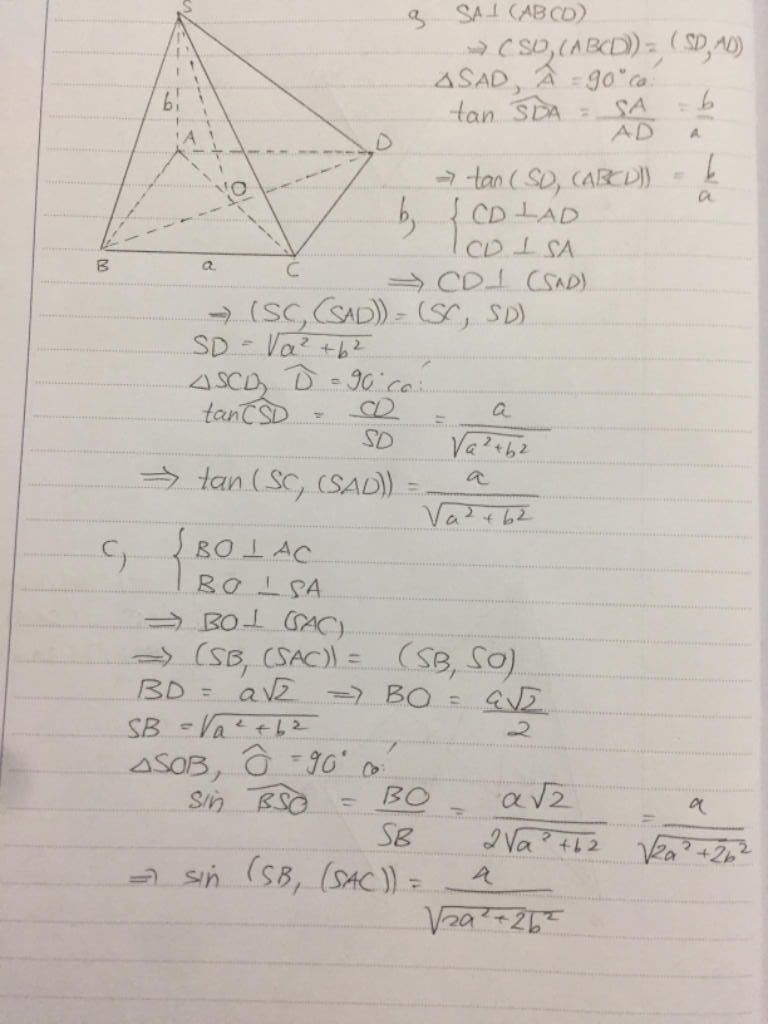 S
b
A
D
O
B
a
C
a, SA⊥(ABCD)
⇒ (SD,(ABCD)) = (SD,AD)
ΔSAD, Â = 90° có:
tan SDA = SA/AD = b/a
⇒ tan(SD, (ABCD)) = b/a
b, { CD ⊥ AD
CD ⊥ SA
⇒ CD ⊥ (SAD)
⇒ (SC, (SAD)) = (SC, SD)
SD = √(a² + b²)
ΔSCD, D̂ = 90° có:
tan CSD = CD/SD = a/√(a²+b²)
⇒ tan (SC, (SAD)) = a/√(a²+b²)
c, { BO ⊥ AC
BO ⊥ SA
⇒ BO ⊥ (SAC)
⇒ (SB, (SAC)) = (SB, SO)
BD = a√2 ⇒ BO = a√2/2
SB = √(a² + b²)
ΔSOB, Ô = 90° có:
sin BSO = BO/SB = a√2/2√(a²+b²) = a/√(2a²+2b²)
⇒ sin (SB, (SAC)) = a/√(2a²+2b²)